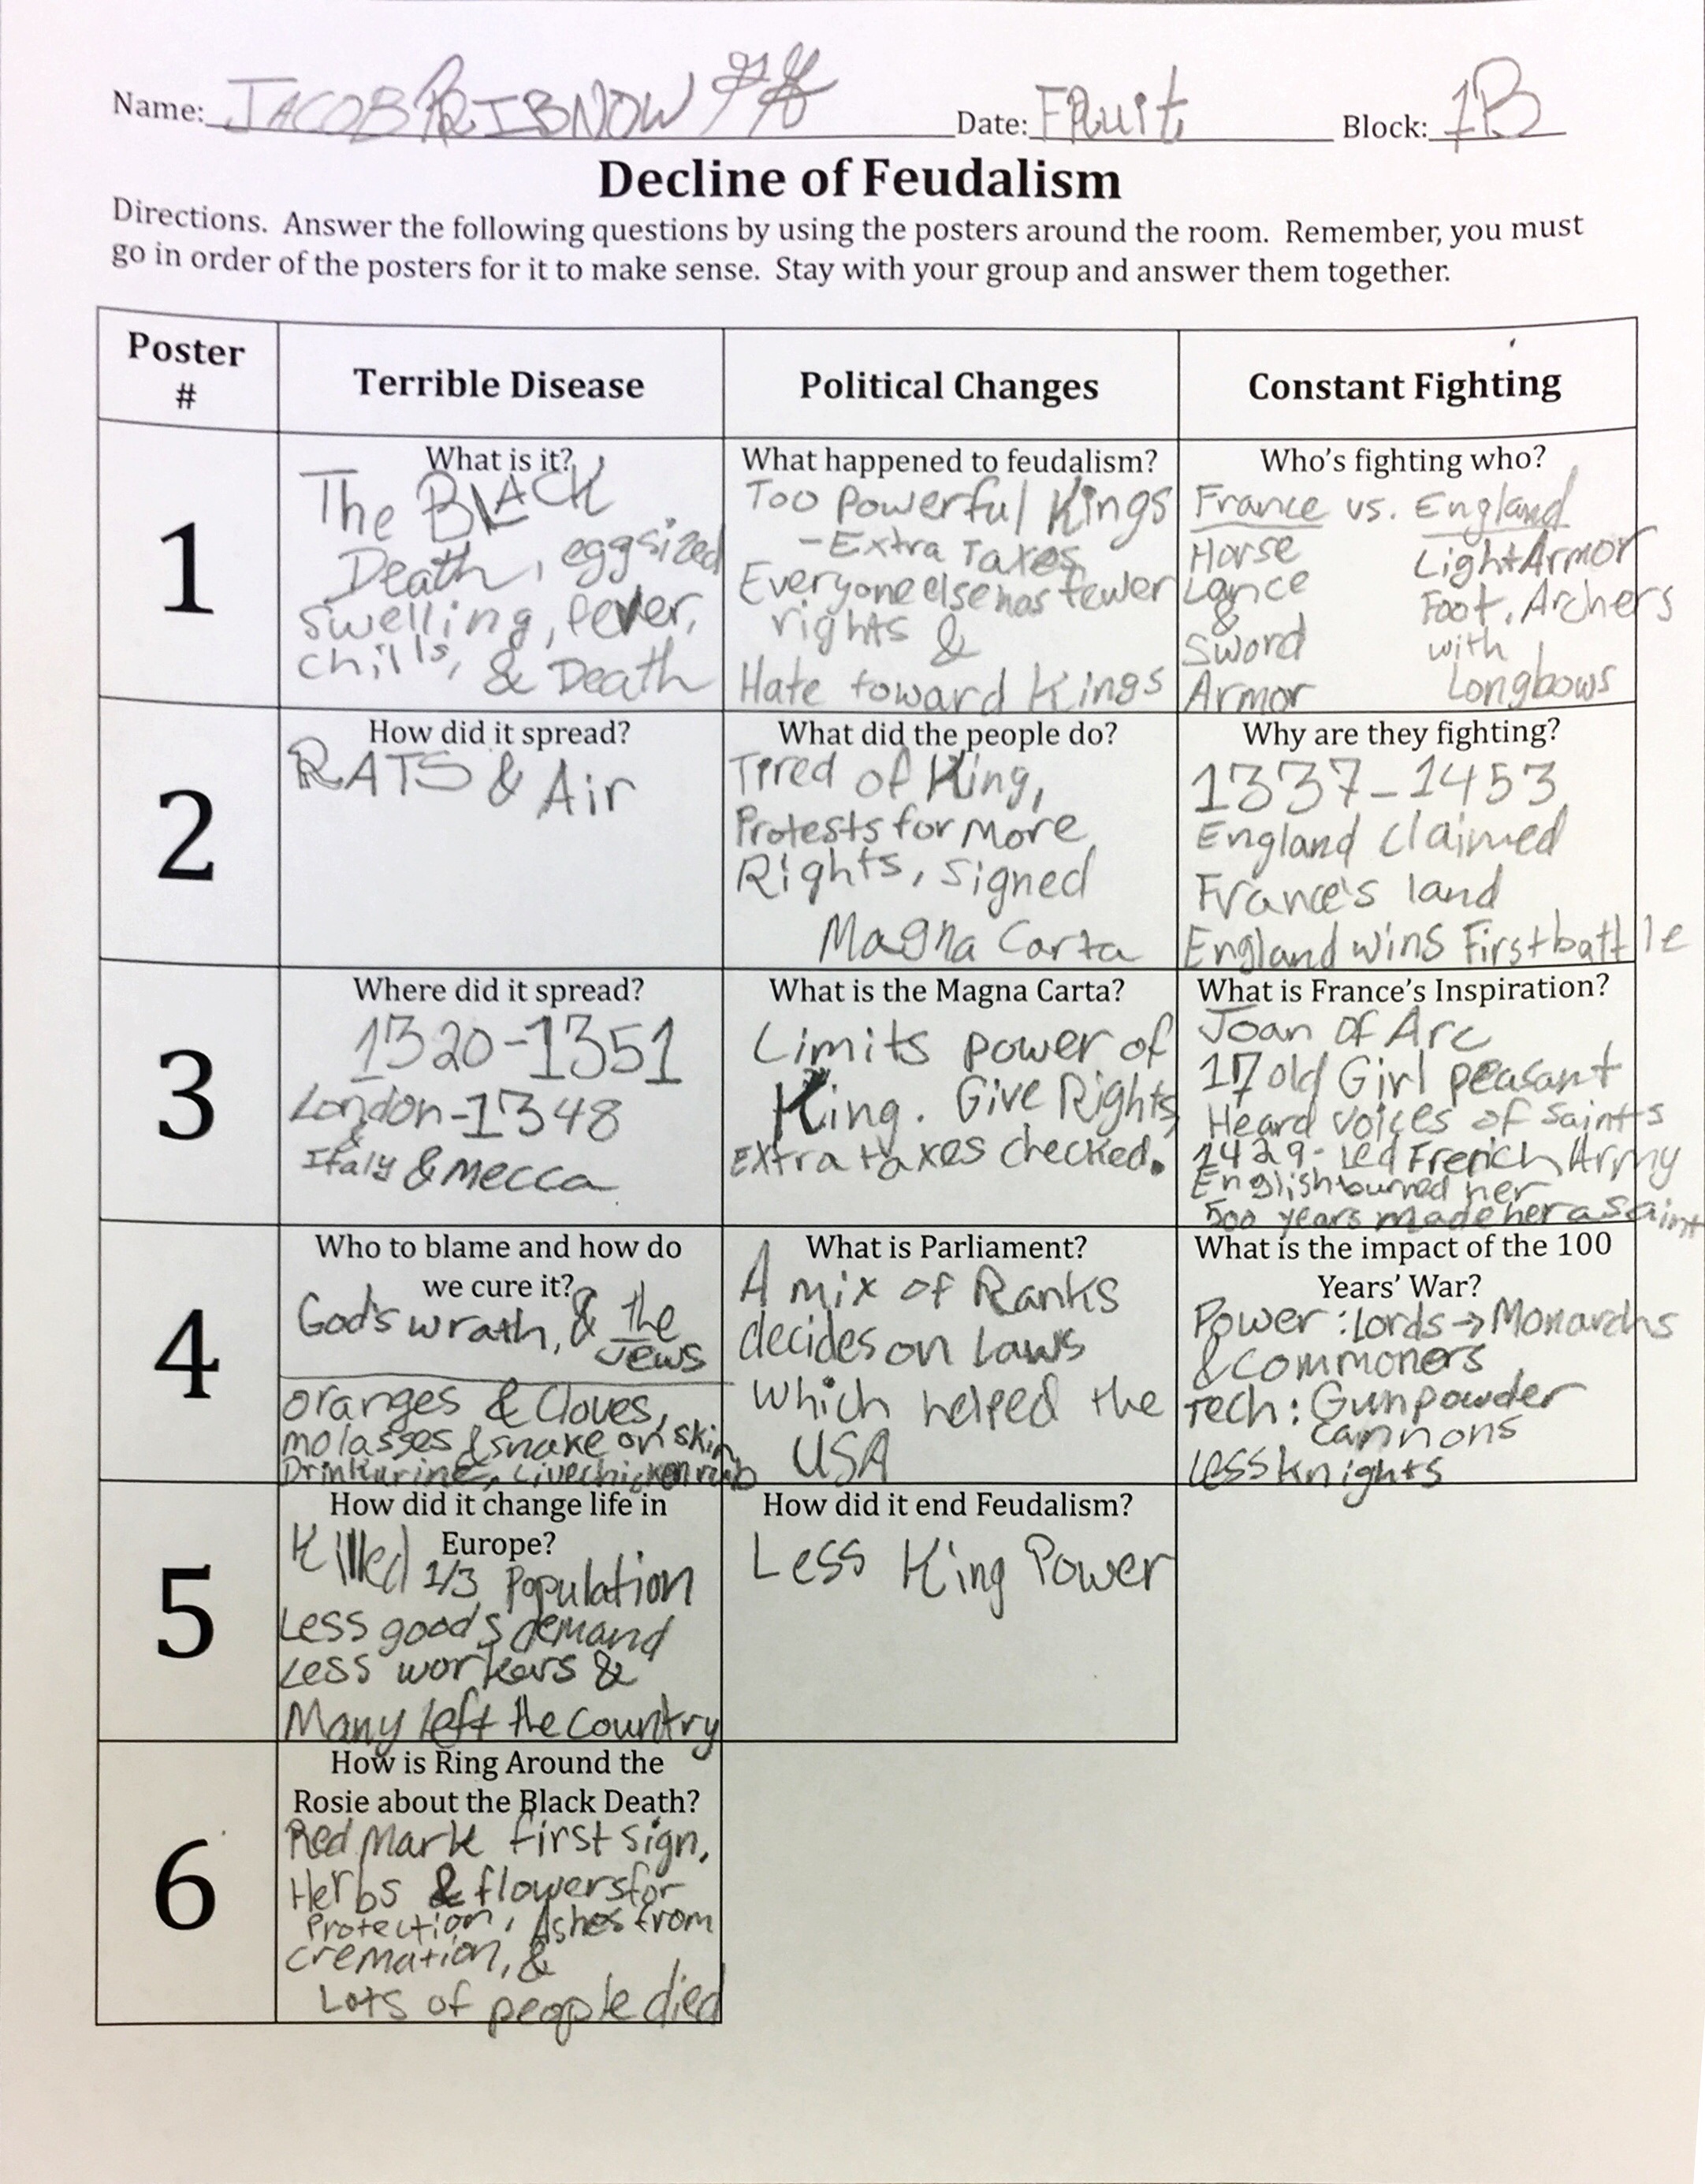 Name: JACOB PRIBNOW Date: FRuit Block: 1B
Decline of Feudalism
Directions. Answer the following questions by using the posters around the room. Remember, you must
go in order of the posters for it to make sense. Stay with your group and answer them together.
Poster
#
Terrible Disease
Political Changes
Constant Fighting
1
What is it?
The BLACK
Death, eggsized
swelling, fever,
chills, & Death
What happened to feudalism?
Too Powerful Kings
-Extra Taxes
Everyone else has fewer
rights &
Hate toward Kings
Who's fighting who?
France vs. England
Horse
Lance
&
Sword
Armor
Light Armor
Foot, Archers
with
Longbows
2
How did it spread?
RATS & Air
What did the people do?
Tired of King,
Protests for More
Rights, signed
Magna Carta
Why are they fighting?
1337-1453
England claimed
France's land
England wins First battle
3
Where did it spread?
1320-1351
London-1348
&
Italy & Mecca
What is the Magna Carta?
Limits power of
King. Give Rights,
Extra taxes checked.
What is France's Inspiration?
Joan of Arc
17 old Girl peasant
Heard voices of saints
1429- Led French Army
English burned her
500 years made her a Saint
4
Who to blame and how do
we cure it?
God's wrath, & the
Jews
oranges & Cloves,
molasses & snake on skin
Drink urine, Live chicken rub
What is Parliament?
A mix of Ranks
decides on Laws
which helped the
USA
What is the impact of the 100
Years' War?
Power: Lords → Monarchs
& commoners
Tech: Gunpowder
cannons
Less knights
5
How did it change life in
Europe?
Killed 1/3 Population
Less goods demand
Less workers &
Many left the Country
How did it end Feudalism?
Less King Power
6
How is Ring Around the
Rosie about the Black Death?
Red Mark first sign,
Herbs & flowers for
Protection, Ashes from
cremation, &
Lots of people died